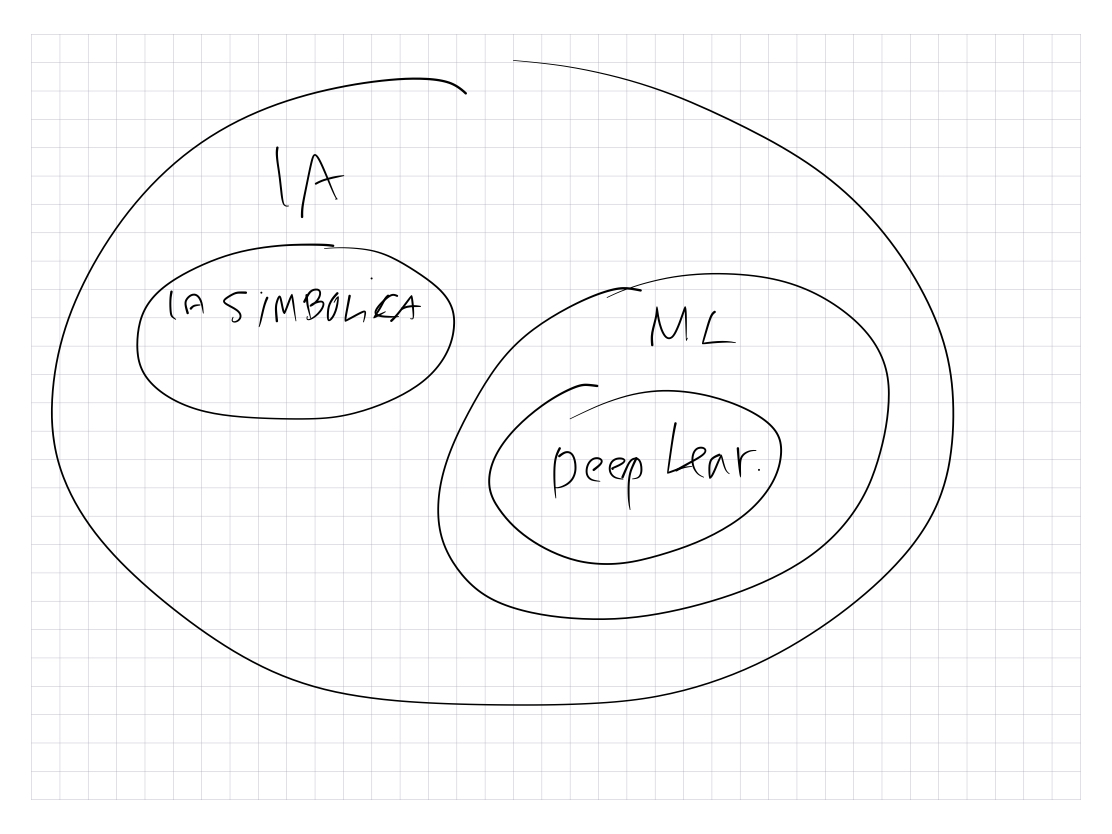 IA
IA SIMBOLICA
ML
Deep Lear.